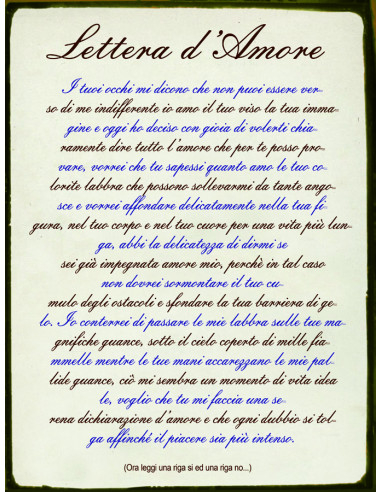 Lettera d'Amore
I tuoi occhi mi dicono che non puoi essere ver-
so di me indifferente io amo il tuo viso la tua imma-
gine e oggi ho deciso con gioia di volerti chia-
ramente dire tutto l'amore che per te posso pro-
vare, vorrei che tu sapessi quanto amo le tuo co-
lorite labbra che possono sollevarmi da tante ango-
sce e vorrei affondare delicatamente nella tua fi-
gura, nel tuo corpo e nel tuo cuore per una vita più lun-
ga, abbi la delicatezza di dirmi se
sei già impegnata amore mio, perchè in tal caso
non dovrei sormontare il tuo cu-
mulo degli ostacoli e sfondare la tua barriera di ge-
lo. Io conterrei di passare le mie labbra sulle tue ma-
gnifiche guance, sotto il cielo coperto di mille fia-
mmelle mentre le tue mani accarezzano le mie pal-
lide guance, ciò mi sembra un momento di vita idea
le, voglio che tu mi faccia una se-
rena dichiarazione d'amore e che ogni dubbio si tol-
ga affinché il piacere sia più intenso.
(Ora leggi una riga si ed una riga no...)